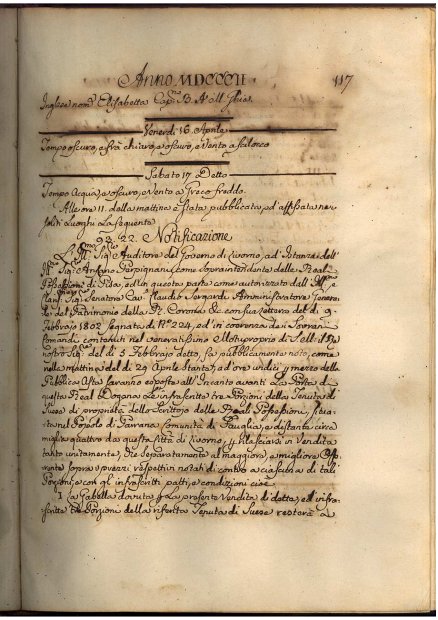 Anno MDCCCII 117
Inglese nom.ᵗᵒ Elisabetta Cap.ⁿᵒ B. A
Venerdì 16. Aprile
Tempo oscuro, e frà chiaro, e oscuro, e Vento a scilocco
Sabato 17. Detto
Tempo Acqua, e oscuro, e Vento a Greco freddo.
Alle ore 11. della mattina è stata pubblicata, ed affissata ne'
soliti Luoghi La seguente
22. Notificazione
Sig.ʳᵉ Auditore del Governo di Livorno, ad Istanza dell'
Sig.ʳᵉ Antonio Carpignani come Soprintendente delle Reali
Possessioni di Pisa, ed in questa parte come autorizzato dall'
Sig.ʳᵉ Senatore Cav.ʳᵉ Claudio Sergardi Amministratore Genera-
le del Patrimonio della R. Corona &c. con sua Lettera del dì 9.
Febbrajo 1802. segnata di N.º 224, ed in coerenza dei Sovrani
Comandi contenuti nel veneratissimo Motuproprio di S. M. il Rè
nostro Sig.ʳᵉ del dì 5. Febbrajo detto, fa pubblicamente noto, come
nella mattina del dì 29. Aprile stante, ad ore undici p mezzo della
Pubblica Asta saranno esposte all'Incanto avanti La Porta di
questa Real Dogana Le infrascritte tre Porzioni della Tenuta di
Suese di proprietà dello Scrittojo delle Reali Possessioni, situa-
ta nel Popolo di Comunità di Fauglia, e distante circa
miglia quattro da questa Città di Livorno, p rilasciarsi in Vendita
tanto unitamente, che separatamente al maggiore, e migliore Offe-
rente sopra i prezzi respettivi notati di contro a ciascuna di tali
Porzioni, e con gl'infrascritti patti, e condizioni cioè
I. La Gabella dovuta p La presente Vendita di dette, ed infra-
scritte tre Porzioni della riferita Tenuta di Suese resterà a